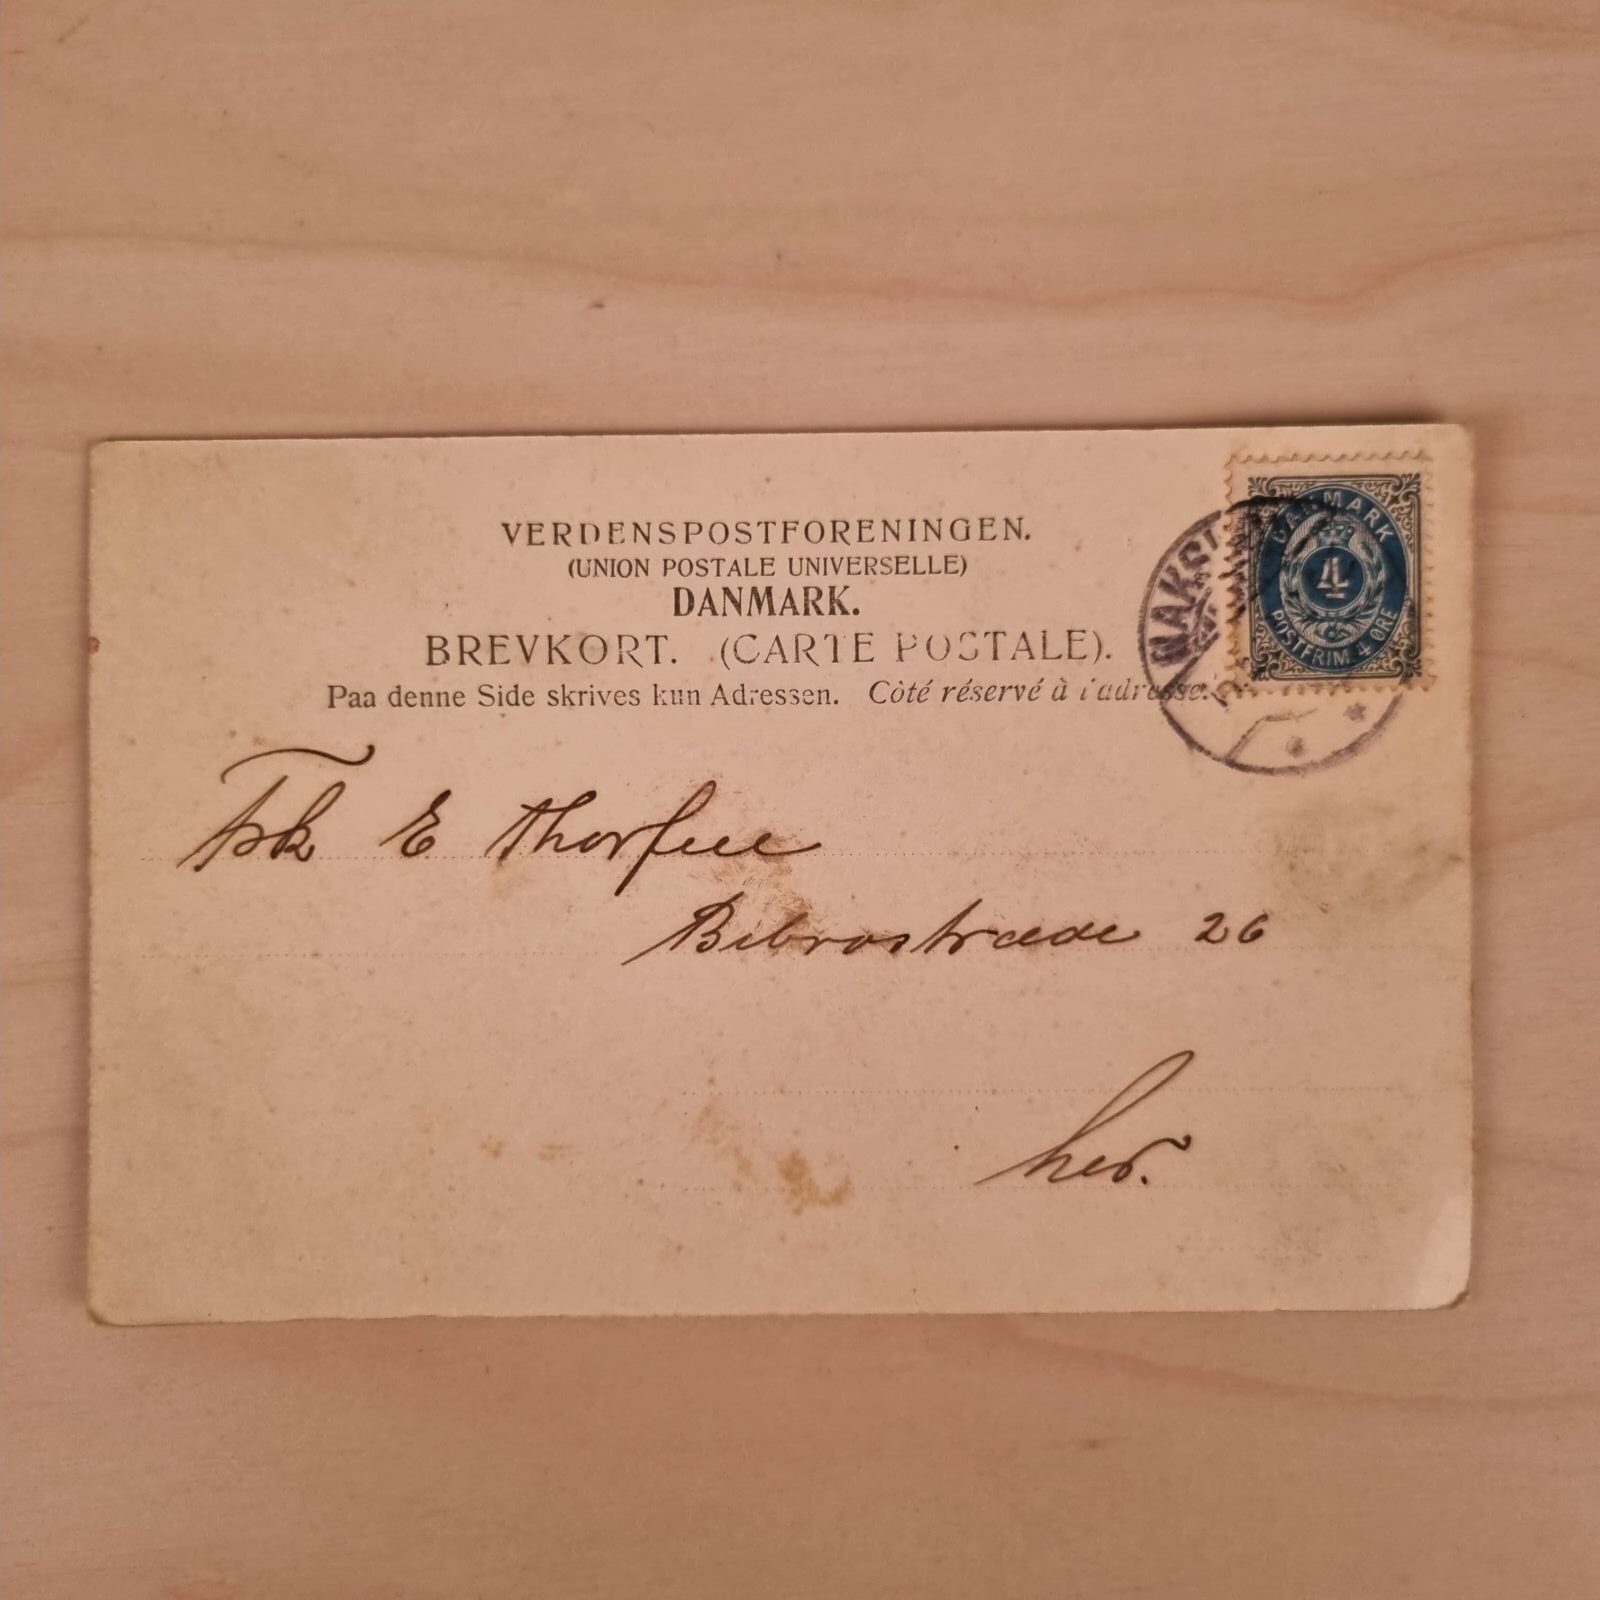 VERDENSPOSTFORENINGEN.
(UNION POSTALE UNIVERSELLE)
DANMARK.
BREVKORT. (CARTE POSTALE).
Paa denne Side skrives kun Adressen. Côté réservé à l'adresse.
DANMARK
4
POSTFRIM. 4 ØRE
Frk E
26
her.